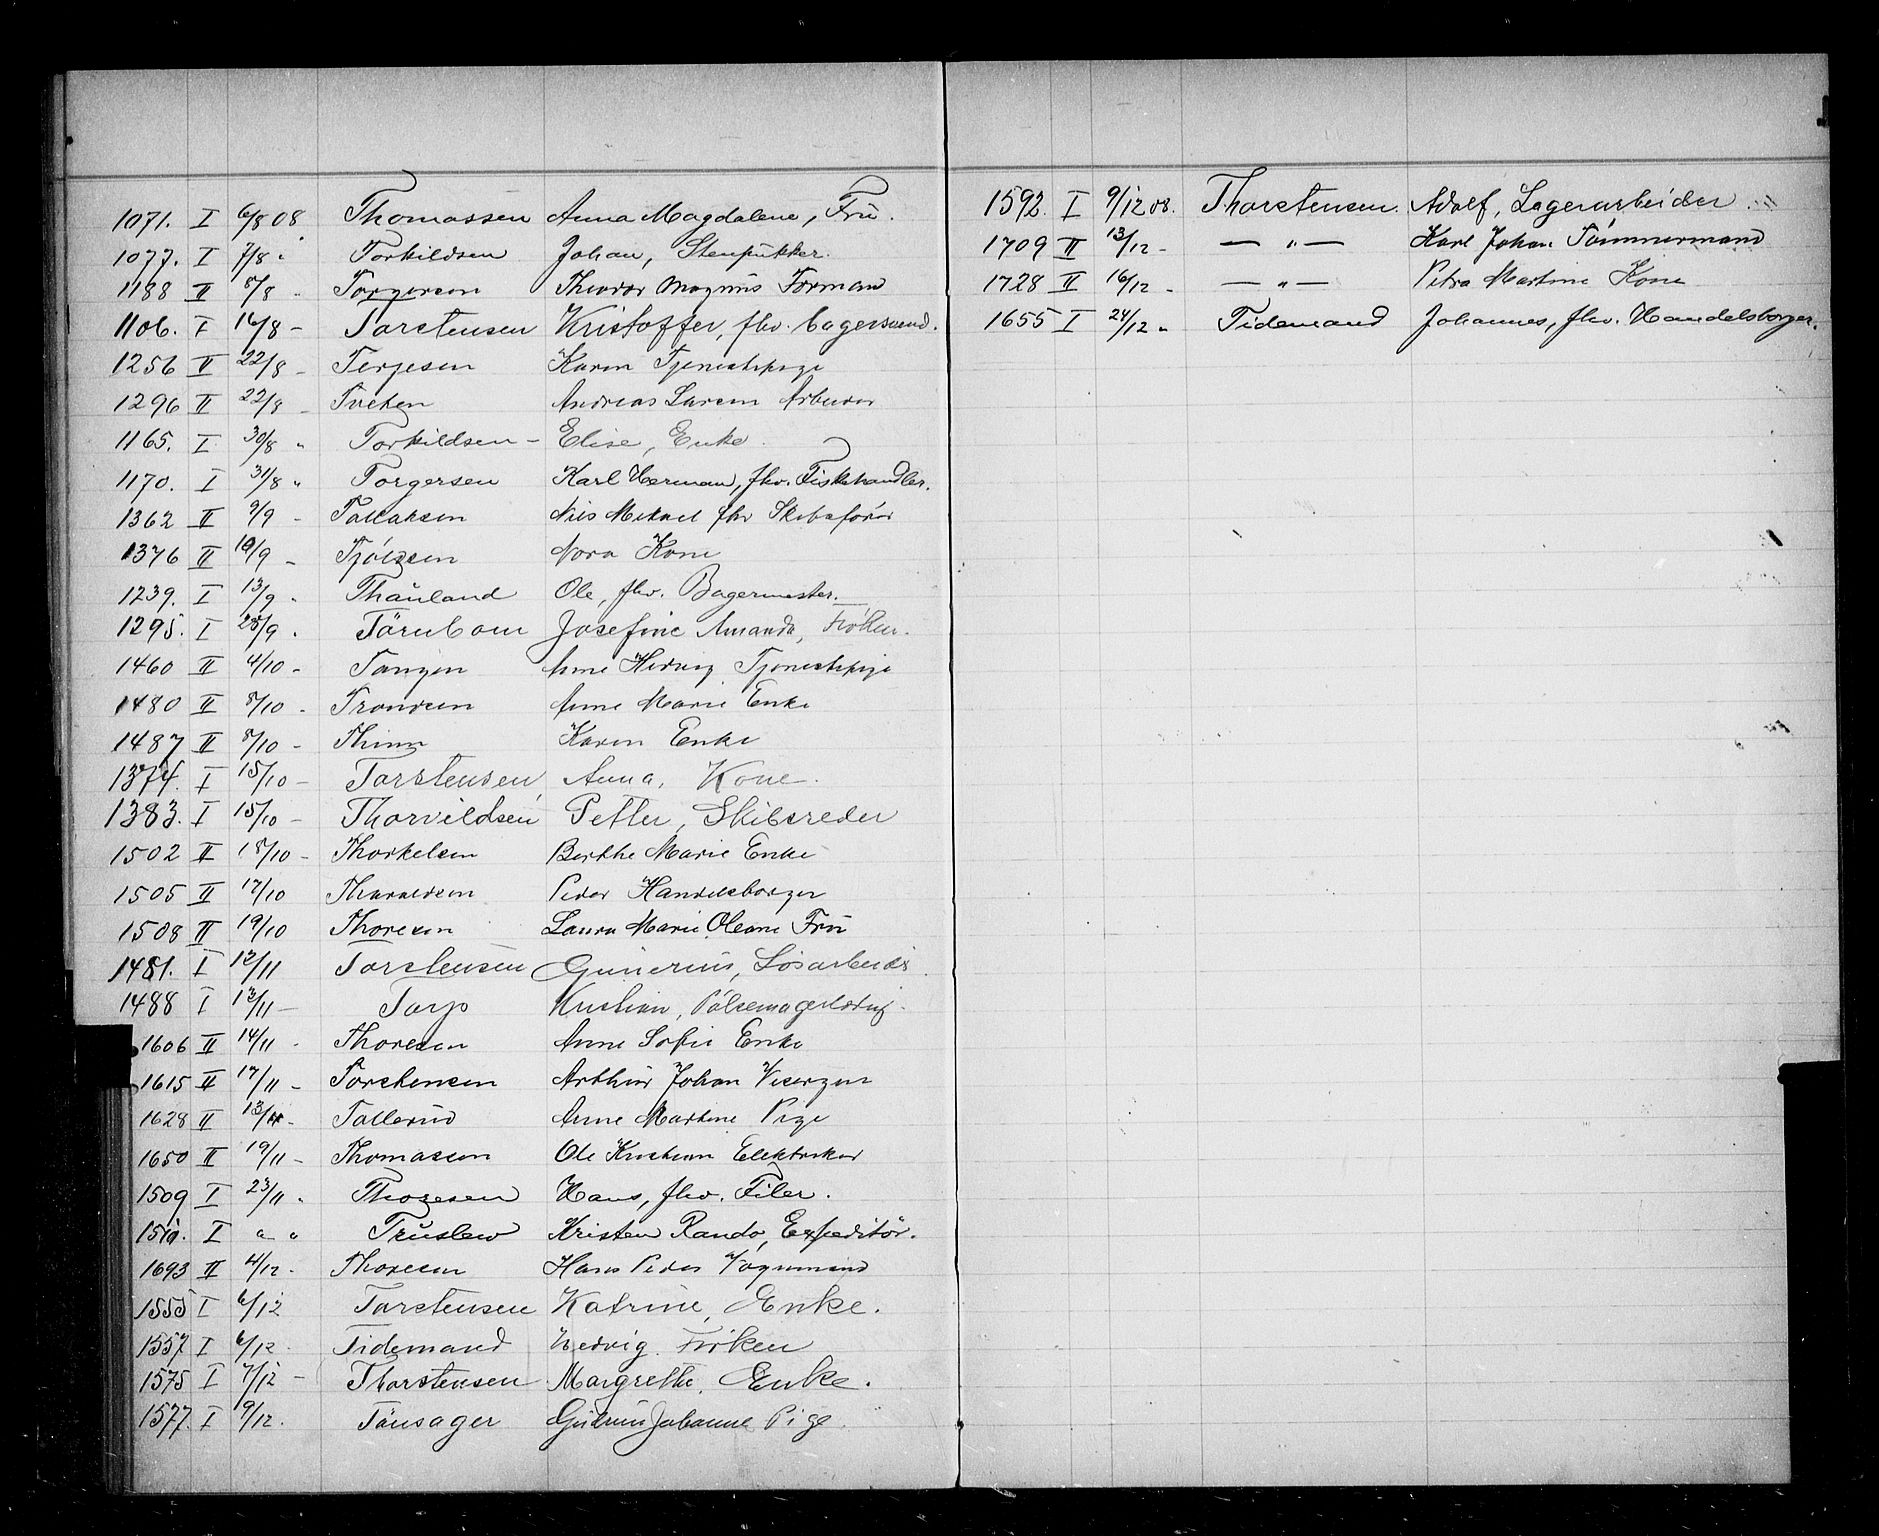 1071. I 6/8 08 Thomassen Anna Magdalene, Fru.
1077. I 7/8 " Torkildsen Johan, Stenpukker.
1188 II 8/8 - Torgersen Theodor Magnus Formand
1106. I 16/8 - Torstensen Kristoffer, fhv. Bagersvend.
1256 II 22/8 - Terjesen Karen Tjenestepige
1296 II 22/8 - Tveten Andreas Larsen Arbeider
1165. I 30/8 " Torkildsen - Elise, Enke.
1170. I 31/8 " Torgersen Karl Herman, fhv. Fiskehandler.
1362 II 9/9 - Tallaksen Nils Mikael fhv Skibsfører
1376 II 10/9 - Tjölsen Nora Kone
1239. I 13/9 " Thauland Ole, fhv. Bagermester.
1295. I 28/9 . Törnbom Josefine Amanda, Frøken.
1460 II 4/10 - Tangen Anne Hedvig Tjenestepige
1480 II 8/10 - Trondsen Anne Marie Enke
1487 II 8/10 - Thinn Karen Enke
1374. I 15/10 - Torstensen, Anna, Kone.
1383. I 15/10 - Thorvildsen Petter, Skibsreder
1502 II 18/10 - Thorkelsen Berthe Marie Enke
1505 II 17/10 Tharaldsen Peder Handelsborger
1508 II 19/10 Thoresen Laura Marie Oleane Fru
1481. I 12/11 Torstensen Gunerius, Løsarbeider
1488 I 13/11 - Torp Kristian, Pølsemagerlærling.
1606 II 14/11 - Thoresen Anne Sofie Enke
1615 II 17/11 - Torstensen Arthur Johan Visergut
1628 II 13/11 - Tallerud Anne Martine Pige
1650 II 19/11 - Thomassen Ole Kristian Elektriker
1509 I 23/11 " Thoresen Hans, fhv. Filer.
1510. I " " Truslew Kristen Rando, Expeditör.
1693 II 4/12 - Thoresen Hans Peder Vognmand
1555 I 6/12 Torstensen Katrine, Enke.
1557 I 6/12 - Tidemand Hedvig. Frøken
1575 I 7/12 - Thorstensen Margrethe, Enke.
1577. I 9/12. Tönsager Gudrun Johanne Pige.
1592. I 9/12 08. Thorstensen. Adolf, Lagerarbeider
1709 II 13/12 - — " — Karl Johan Tømmermand
1728 II 16/12 - — " — Petra Martine Kone
1655 I 24/12 " Tidemand Johannes, fhv. Handelsborger.